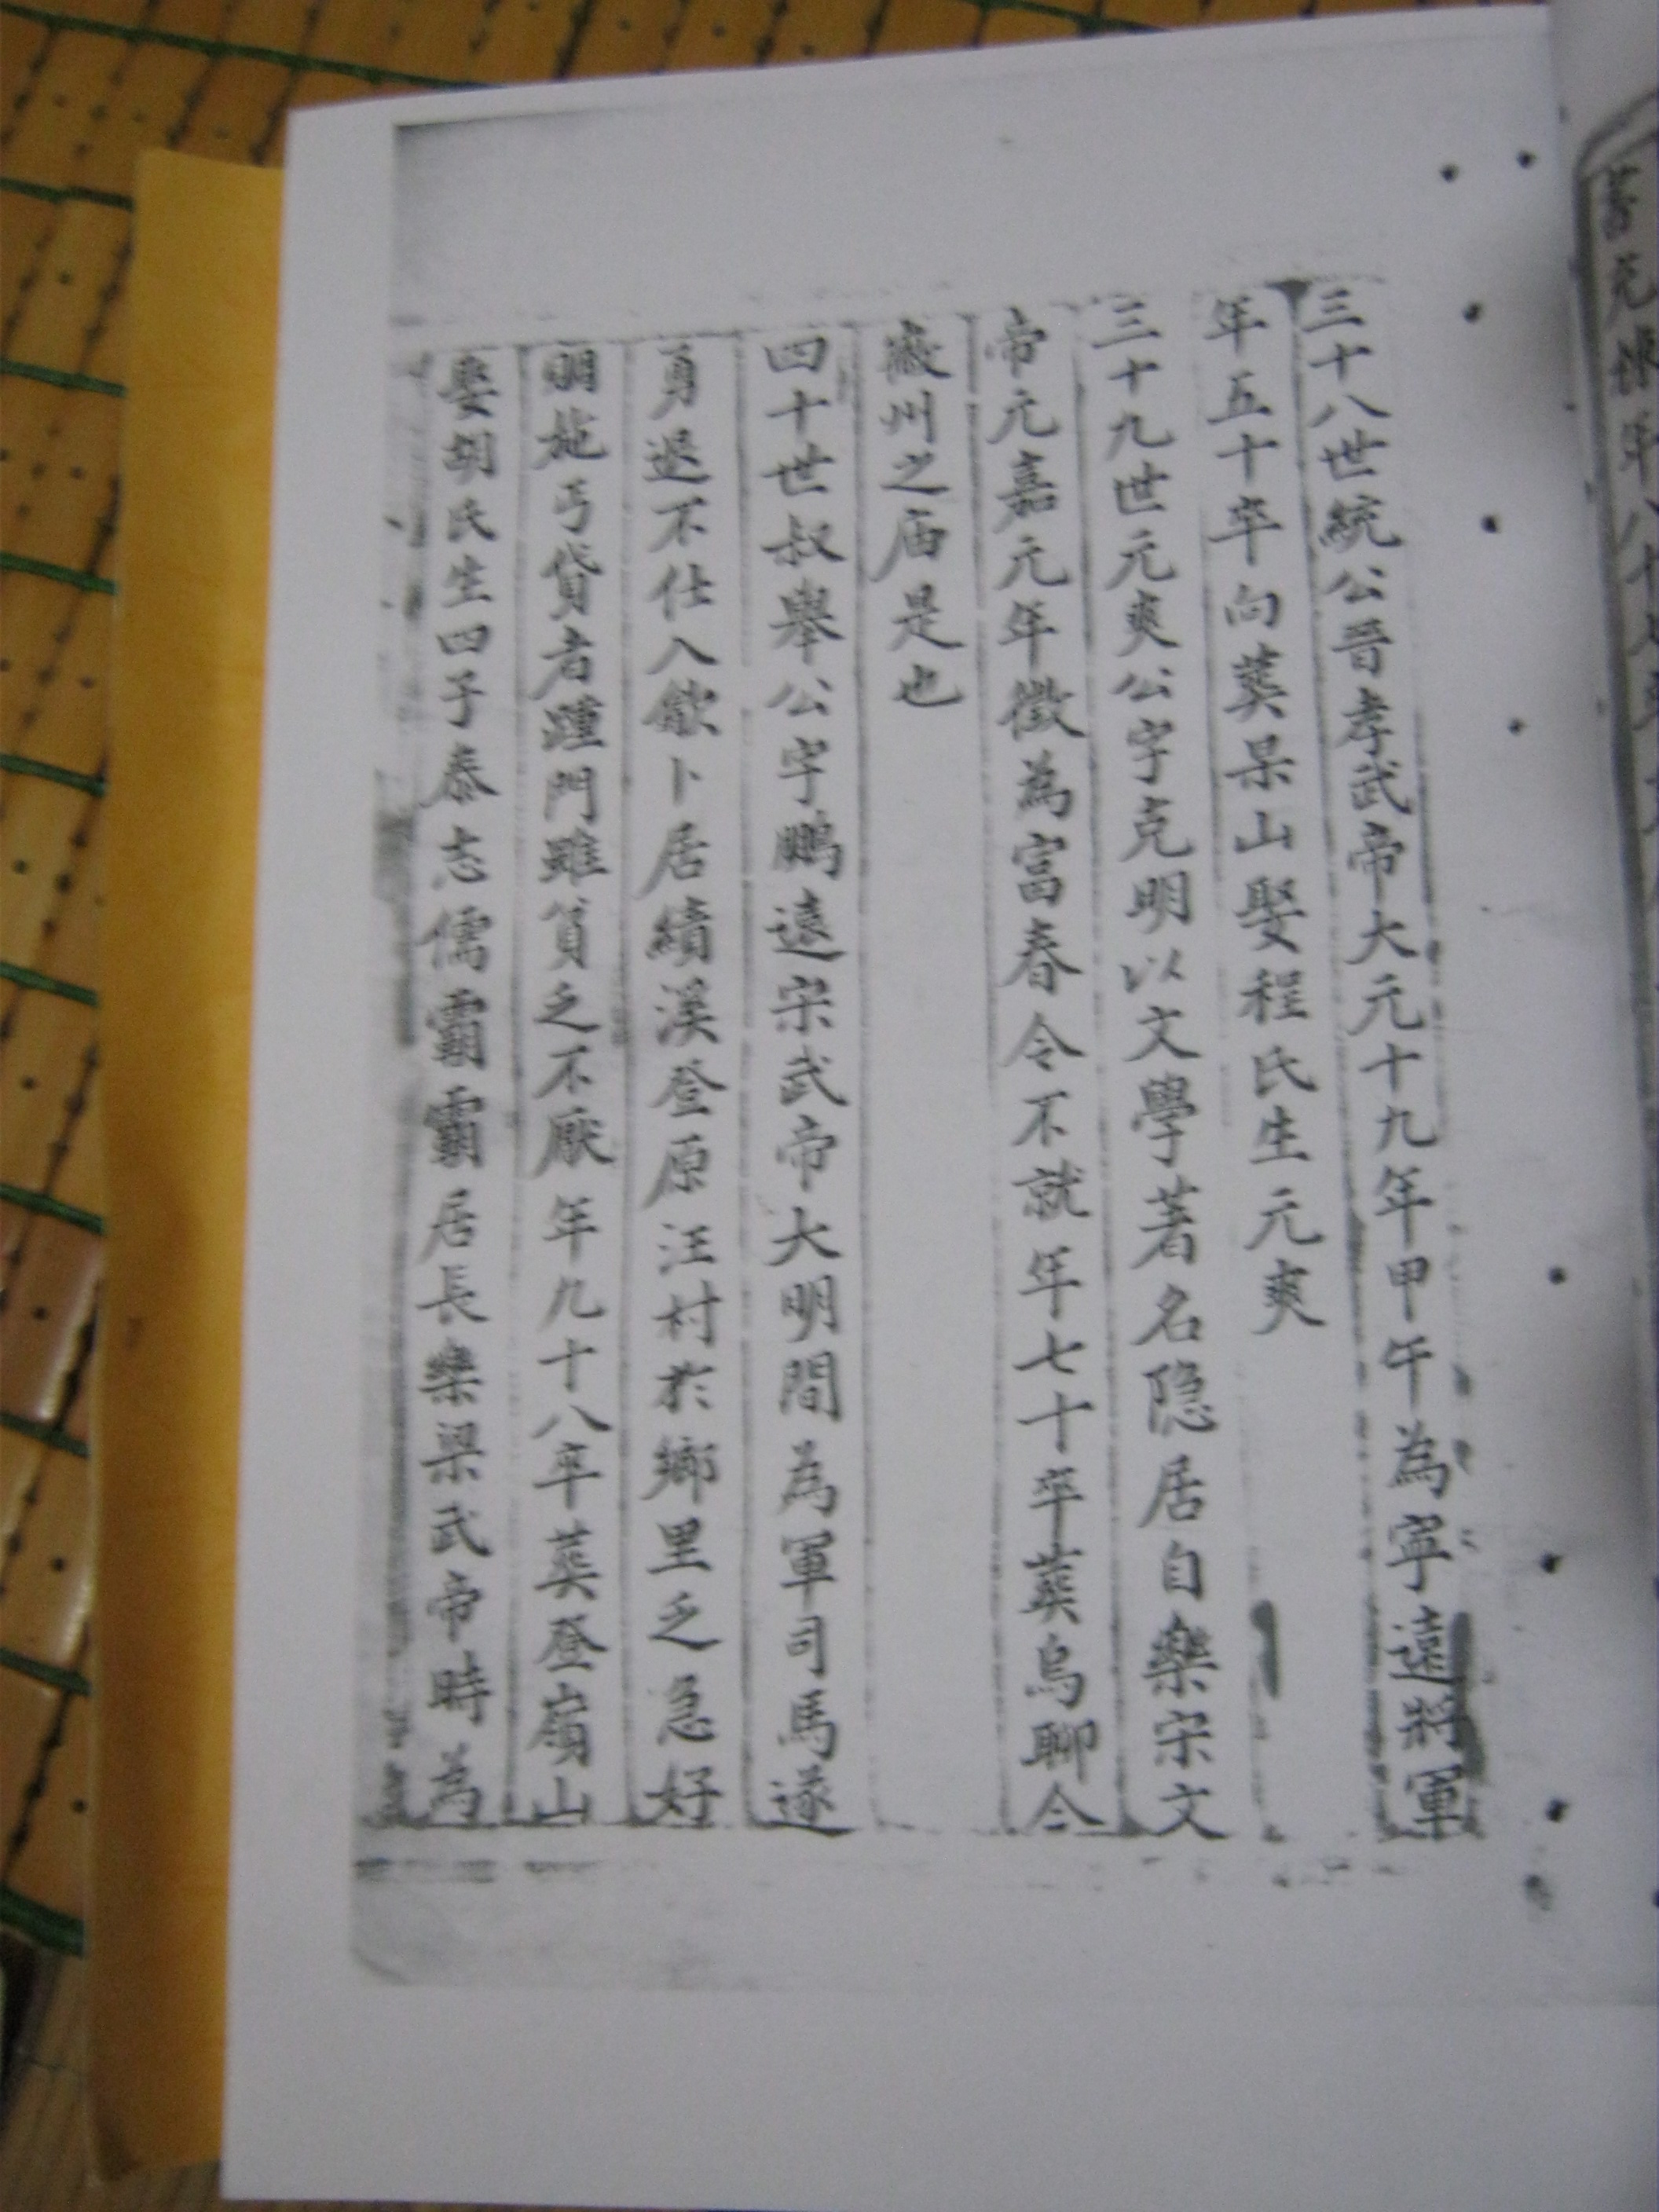 三十八世統公晉孝武帝大元十九年甲午為寧遠將軍
年五十卒向葬杲山娶程氏生元爽
三十九世元爽公字克明以文學著名隐居自樂宋文
帝元嘉元年徵為富春令不就年七十卒葬烏聊今
徽州之庙是也
四十世叔舉公字鵬遠宋武帝大明間為軍司馬遂
勇退不仕入歙卜居績溪登原汪村於鄉里乏急好
賙施丐貸者踵門雖貧乏不厭年九十八卒葬登嶺山
娶胡氏生四子泰志儒霸霸居長樂梁武帝時為